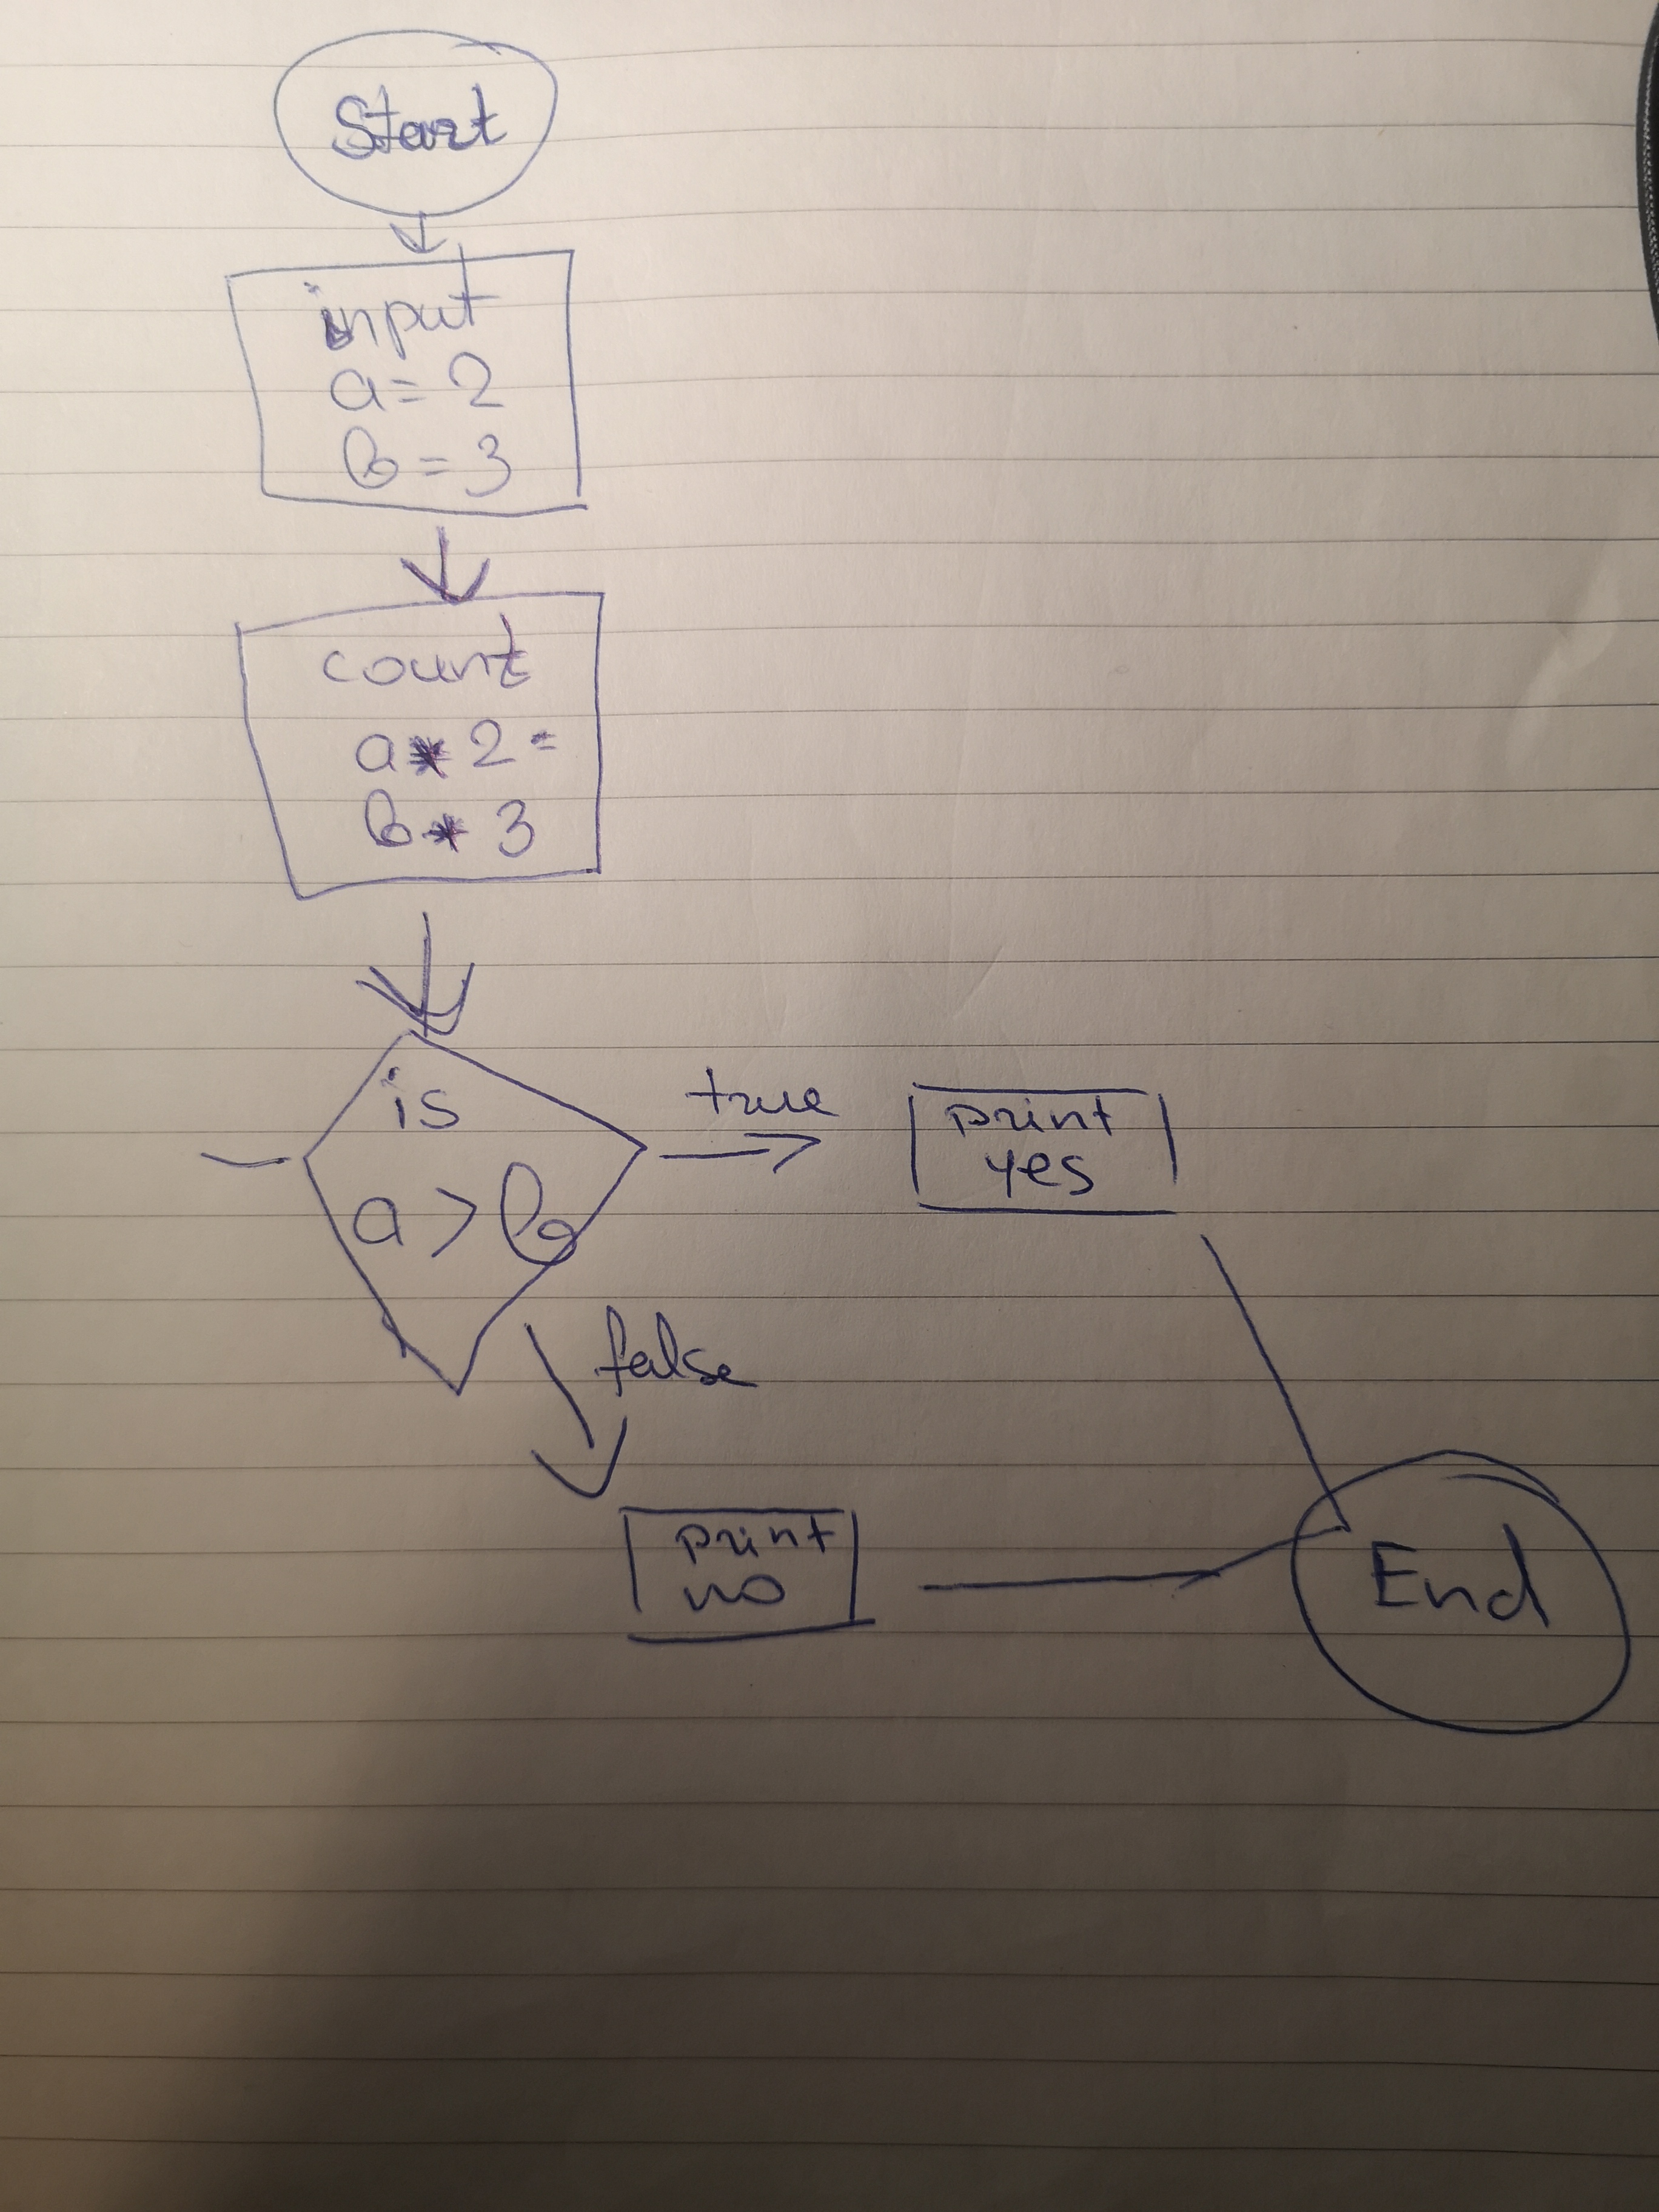 Start
input
a = 2
b = 3
count
a * 2 =
b * 3
is
a > b
true
print
yes
false
print
no
End